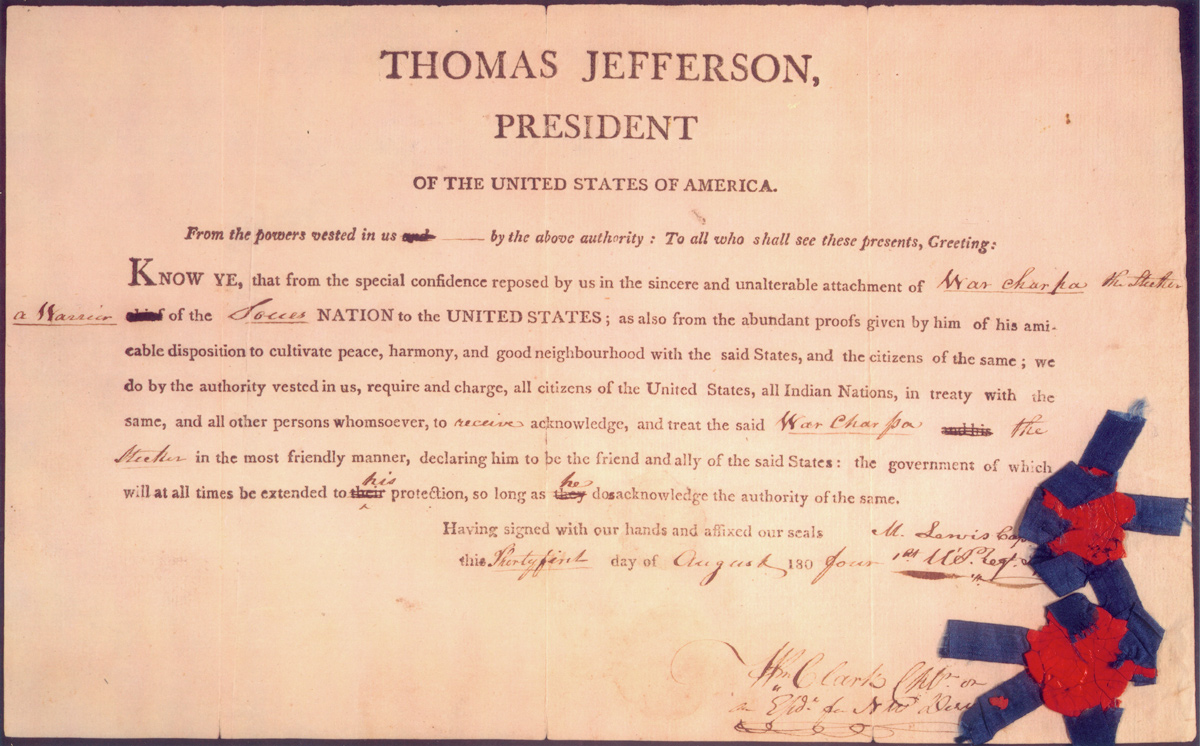 THOMAS JEFFERSON,
PRESIDENT
OF THE UNITED STATES OF AMERICA.
From the powers vested in us and —— by the above authority : To all who shall see these presents, Greeting:
KNOW YE, that from the special confidence reposed by us in the sincere and unalterable attachment of War char pa the Sticker
a Warrior chief of the Soues NATION to the UNITED STATES ; as also from the abundant proofs given by him of his ami-
cable disposition to cultivate peace, harmony, and good neighbourhood with the said States, and the citizens of the same ; we
do by the authority vested in us, require and charge, all citizens of the United States, all Indian Nations, in treaty with the
same, and all other persons whomsoever, to receive acknowledge, and treat the said War Char pa and his the
Sticker in the most friendly manner, declaring him to be the friend and ally of the said States : the government of which
will at all times be extended to their his protection, so long as they he dos acknowledge the authority of the same.
Having signed with our hands and affixed our seals
this Thirty first day of August 180 four
M. Lewis Cap
1st U.S. Regt.
Wm Clark Cptn. on
an Expd. for N W Disc